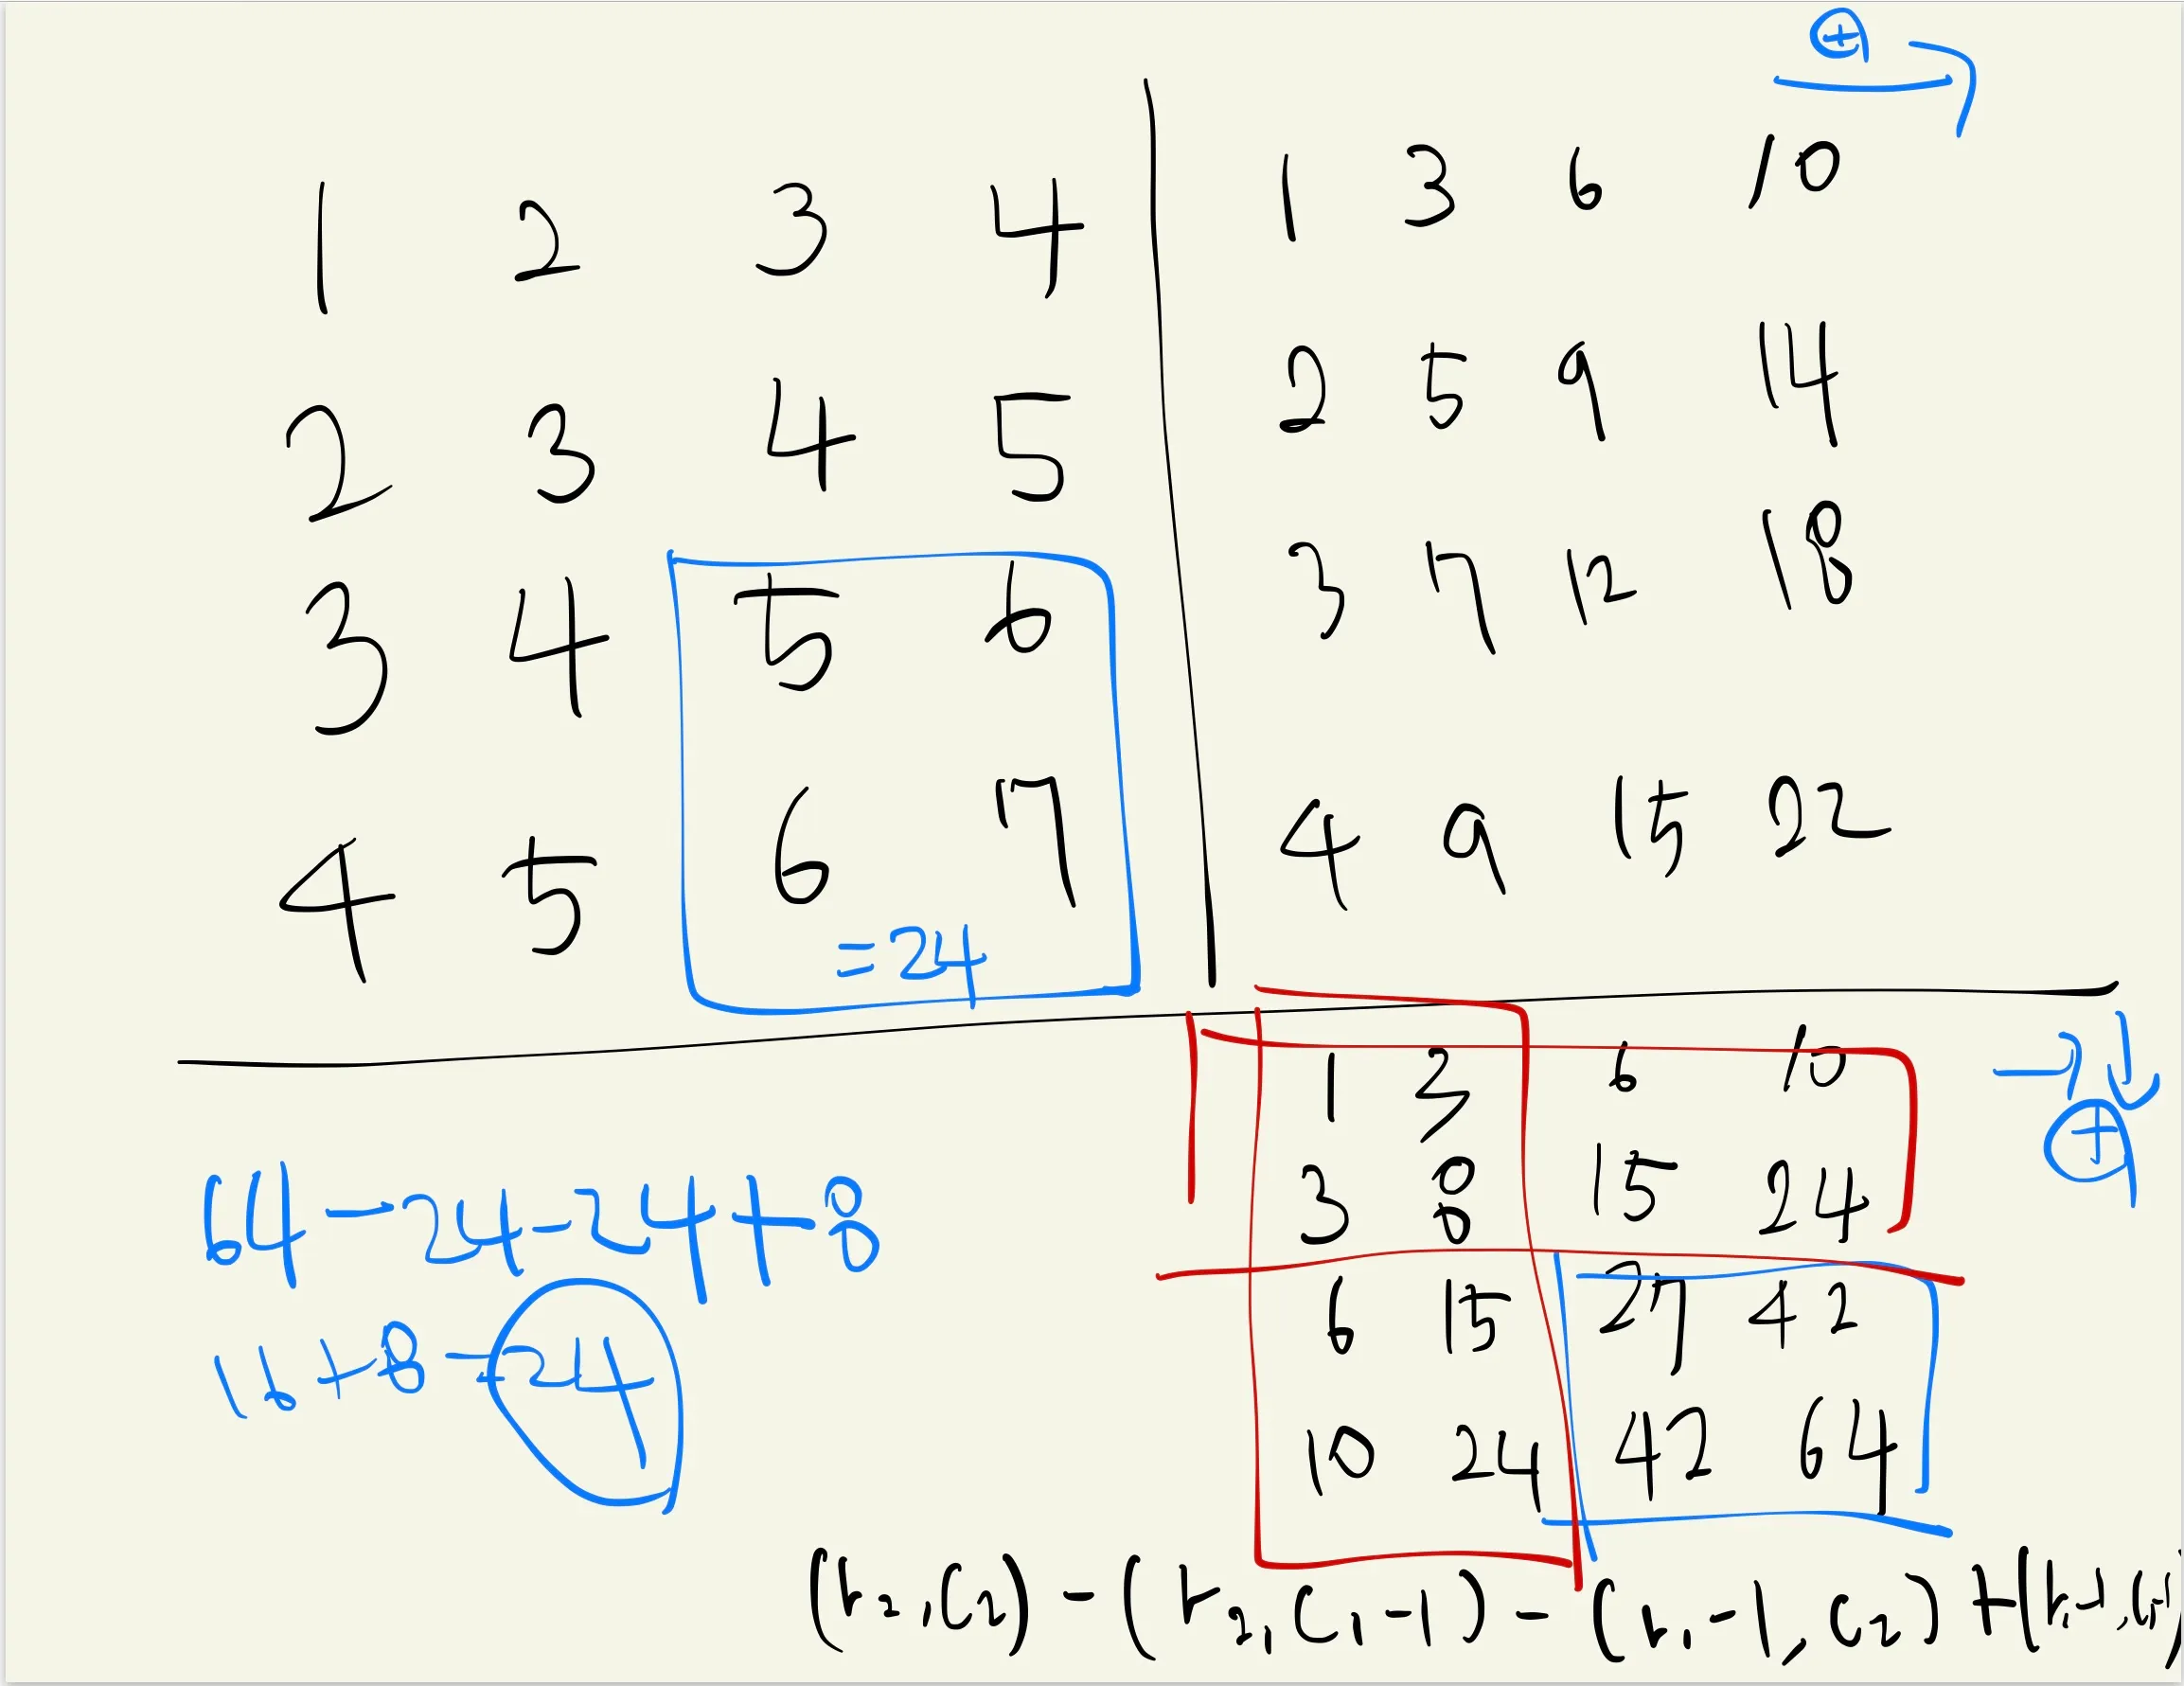 ⊕
1 2 3 4
2 3 4 5
3 4 5 6
4 5 6 7
=24
1 3 6 10
2 5 9 14
3 7 12 18
4 9 15 22
64-24-24+8
16+8=24
1 3 6 10
3 8 15 24
6 15 27 42
10 24 42 64
⊕
(r2,C2)-(r2,C1-1)-(r1-1,C2)+(r1-1,C1-1)